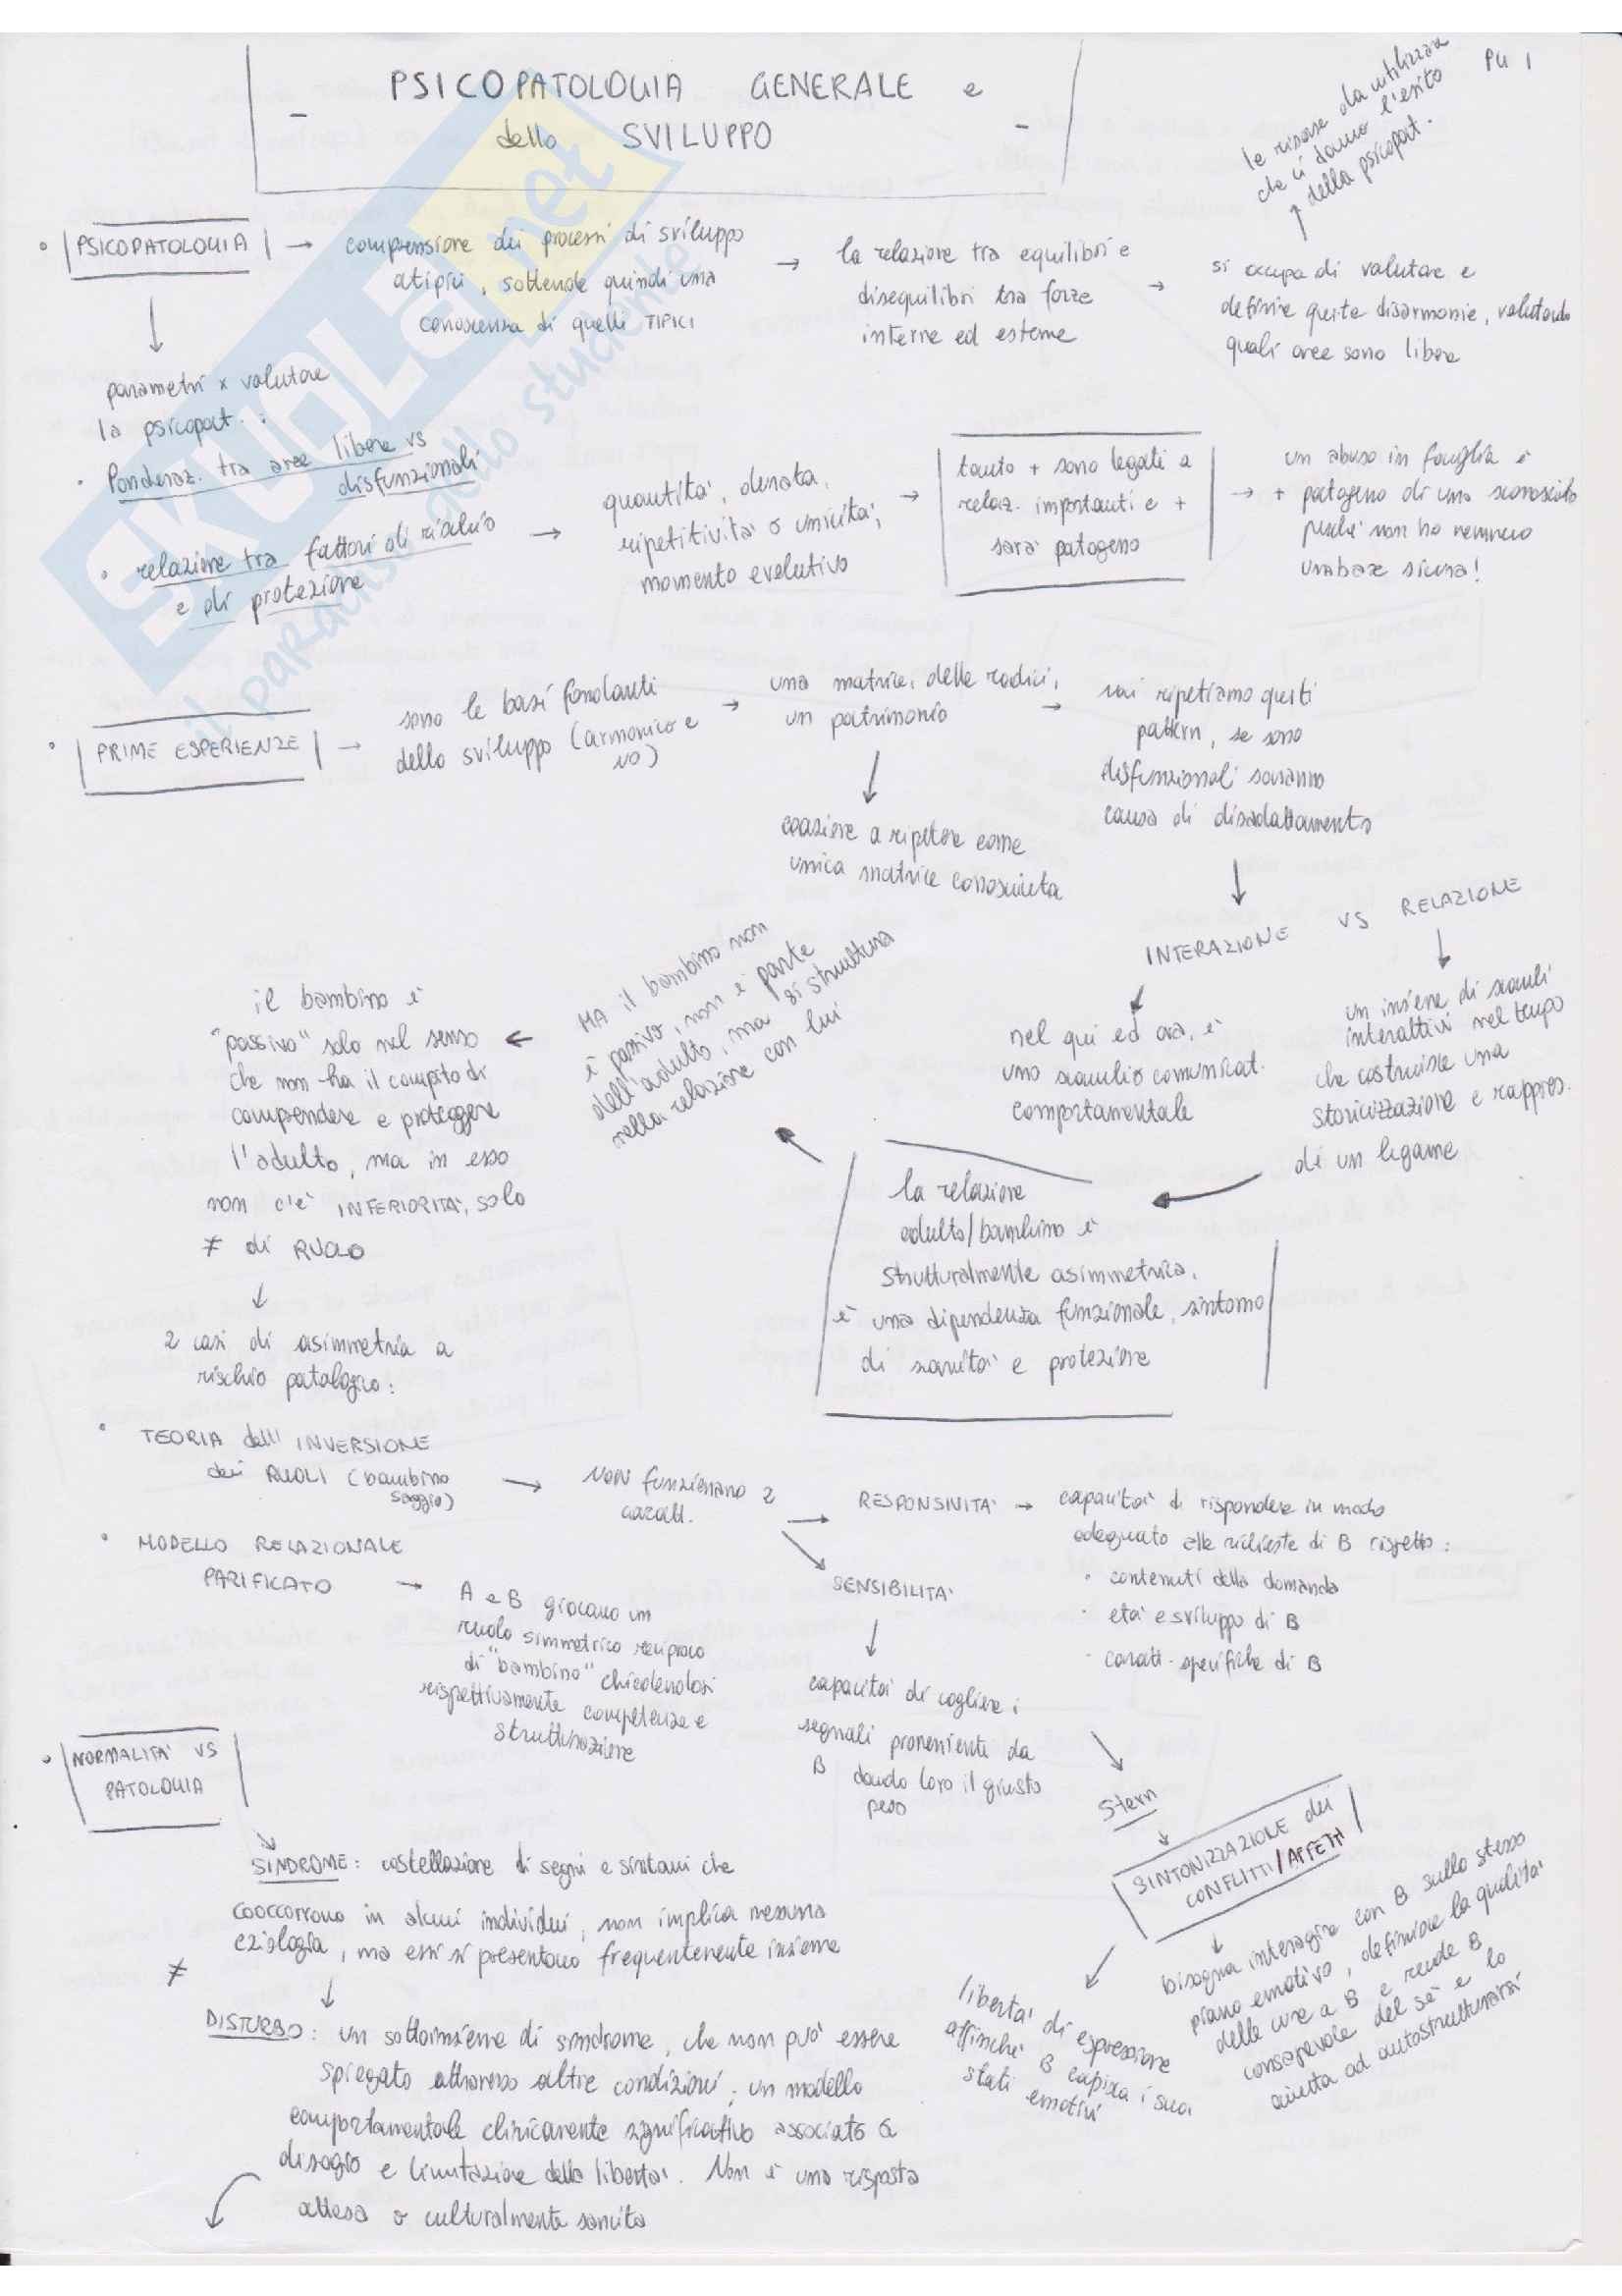 PG 1
PSICOPATOLOGIA GENERALE e
dello SVILUPPO
le risorse da utilizzare
che ci danno l'esito
della psicopat.
PSICOPATOLOGIA → comprensione dei processi di sviluppo
atipici, sottende quindi una
conoscenza di quelli TIPICI
→ la relazione tra equilibri e
disequilibri tra forze
interne ed esterne
→ si occupa di valutare e
definire queste disarmonie, valutando
quali aree sono libere
parametri x valutare
la psicopat. :
• Ponderaz. tra aree libere vs
disfunzionali
• relazione tra fattori di rischio
e di protezione
→ quantità, durata,
ripetitività o unicità,
momento evolutivo
→ tanto + sono legati a
relaz. importanti e +
sarà patogeno
→ un abuso in famiglia è
+ patogeno di uno sconosciuto
perché non ho nemmeno
una base sicura!
• PRIME ESPERIENZE → sono le basi fondanti
dello sviluppo (armonico e
NO)
→ una matrice, delle radici,
un patrimonio
→ noi ripetiamo questi
pattern, se sono
disfunzionali saranno
causa di disadattamento
coazione a ripetere come
unica matrice conosciuta
INTERAZIONE VS RELAZIONE
nel qui ed ora, è
uno scambio comunicat.
comportamentale
un insieme di scambi
interattivi nel tempo
che costruisce una
storicizzazione e rappres.
di un legame
la relazione
adulto/bambino è
strutturalmente asimmetrica,
è una dipendenza funzionale, sintomo
di sanità e protezione
MA il bambino non
è passivo, non è parte
dell'adulto, ma si struttura
nella relazione con lui
il bambino è
"passivo" solo nel senso
che non ha il compito di
comprendere e proteggere
l'adulto, ma in esso
non c'è INFERIORITÀ, solo
≠ di RUOLO
2 casi di asimmetria a
rischio patologico:
• TEORIA dell'INVERSIONE
dei RUOLI (bambino
saggio)
→ NON funzionano 2
caratt.
→ RESPONSIVITÀ → capacità di rispondere in modo
adeguato alle richieste di B rispetto:
• contenuti della domanda
• età e sviluppo di B
• caratt. specifiche di B
SENSIBILITÀ
capacità di cogliere i
segnali provenienti da
B dando loro il giusto
peso
• MODELLO RELAZIONALE
PARIFICATO → A e B giocano un
ruolo simmetrico reciproco
di "bambino" chiedendosi
rispettivamente competenze e
strutturazione
Stern
SINTONIZZAZIONE dei
CONFLITTI/AFFETTI
bisogna interagire con B sullo stesso
piano emotivo, definisce la qualità
delle cure a B e rende B
consapevole del sé e lo
aiuta ad autostrutturarsi
libertà di espressione
affinché B capisca i suoi
stati emotivi
• NORMALITÀ VS
PATOLOGIA
SINDROME: costellazione di segni e sintomi che
cooccorrono in alcuni individui, non implica nessuna
eziologia, ma essi si presentano frequentemente insieme
≠
DISTURBO: un sottoinsieme di sindrome, che non può essere
spiegato attraverso altre condizioni; un modello
comportamentale clinicamente significativo associato a
disagio e limitazione della libertà. Non è una risposta
attesa o culturalmente sancita
SKUOLA.net
il paradiso dello studente